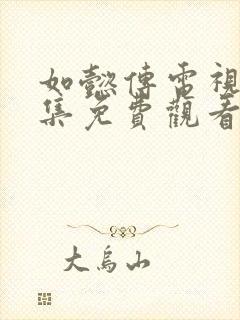 如懿傳電視
集免費觀看
大烏山